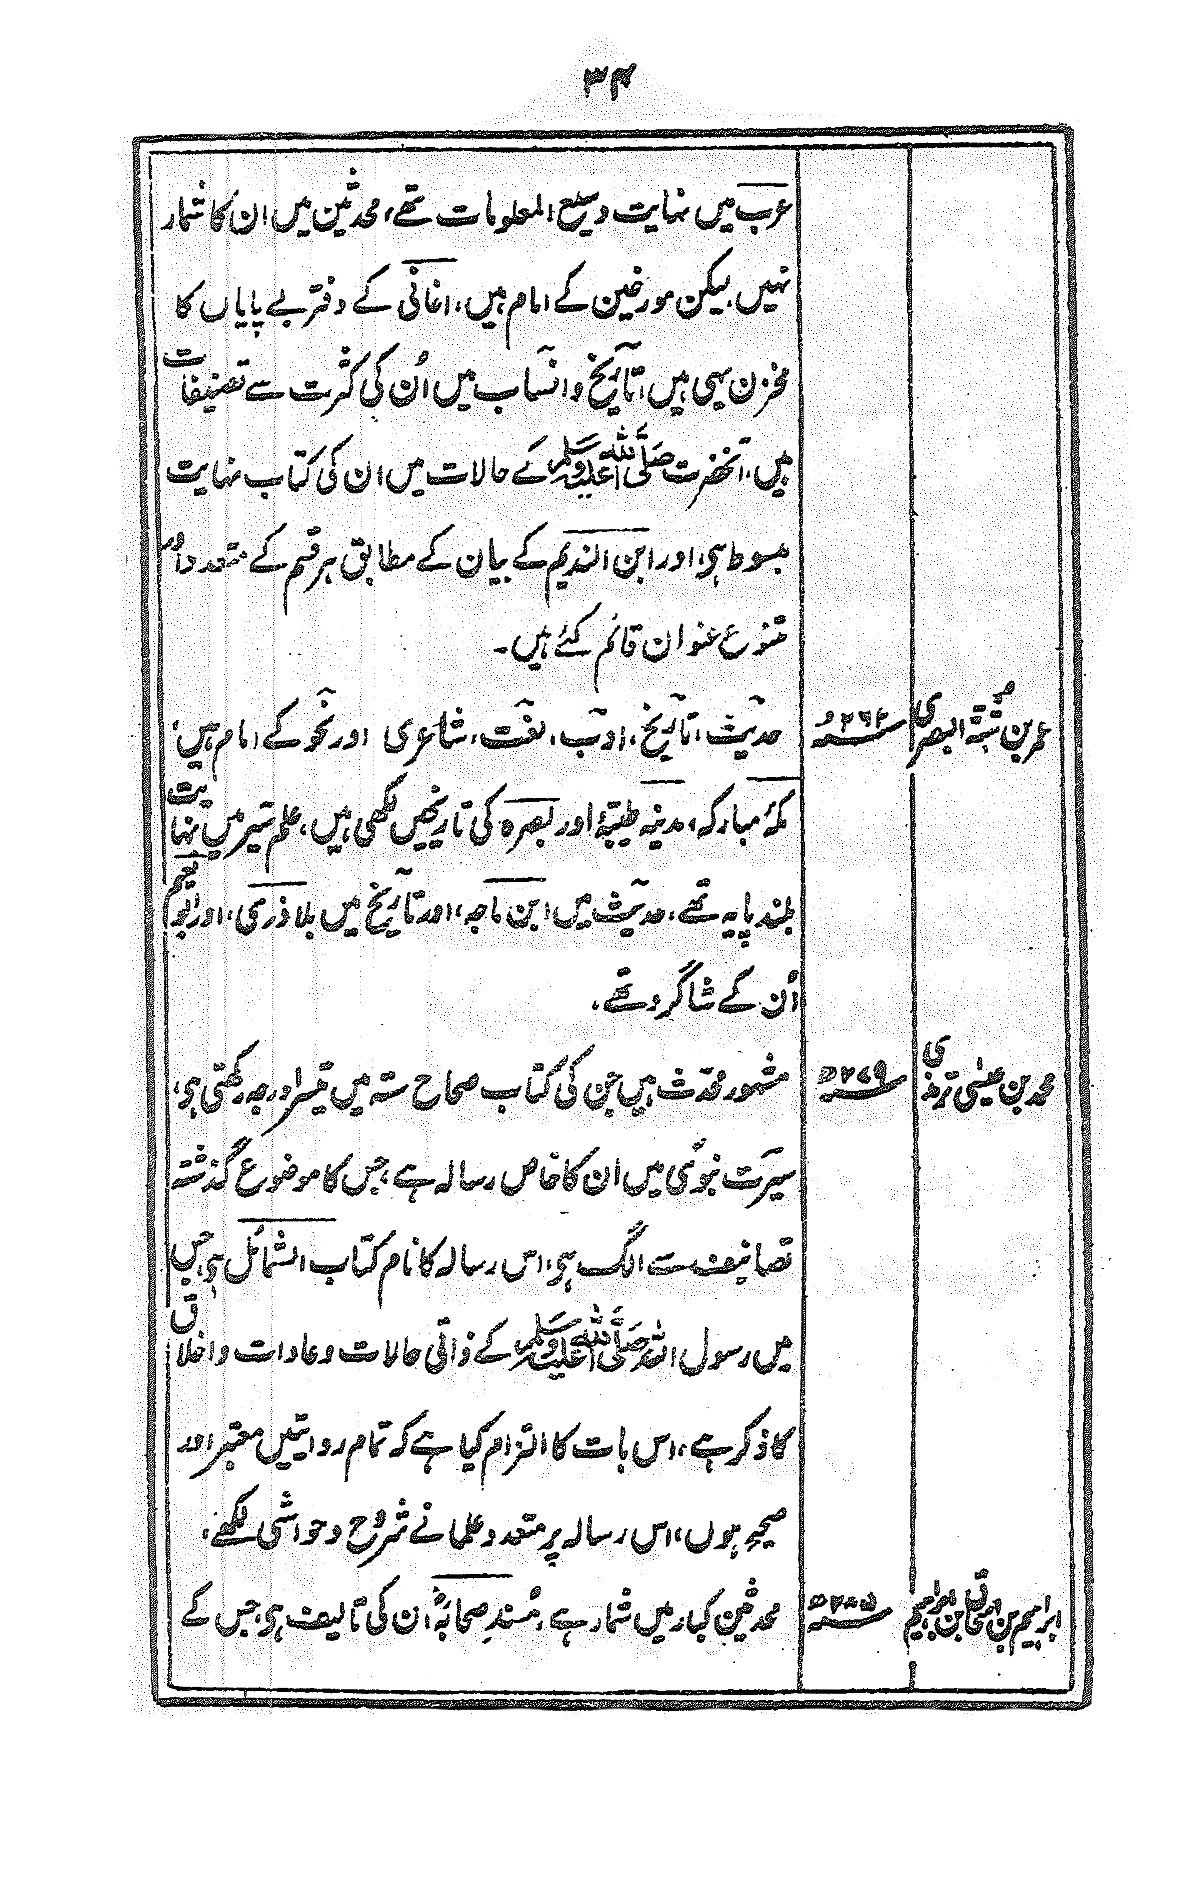 ۳۴
عرب میں نہایت وسیع المعلومات تھے، محدثین میں ان کا شمار
نہیں لیکن مورخین کے امام ہیں، اغانی کے دفتر بے پایاں کا
مخزن یہی ہیں، تاریخ و انساب میں اُن کی کثرت سے تصنیفات
ہیں، آنحضرت صَلَّی اللہ عَلَیْہِ وَسَلَّم کے حالات میں ان کی کتاب نہایت
مبسوط ہی، اور ابن الندیم کے بیان کے مطابق ہر قسم کے متعدد اور
متنوع عنوان قائم کئے ہیں۔
عمر بن شبّۃ البصری م ۲۶۲ھ حدیث، تاریخ، ادب، لغت، شاعری اور نحو کے امام ہیں،
مکۂ مبارکہ، مدینہ طیبّۂ اور بصرہ کی تاریخیں لکھی ہیں، علم سِیَر میں نہایت
بلند پایہ تھے، حدیث میں ابن ماجہ، اور تاریخ میں بلاذری، اور ابو نعیم
اُن کے شاگرد تھے،
محمد بن عیسٰی ترمذی ۲۷۹ھ مشہور محدّث ہیں جن کی کتاب صحاح ستہ میں تیسرا درجہ رکھتی ہی،
سیرت نبوی میں ان کا خاص رسالہ ہے، جس کا موضوع گذشتہ
تصانیف سے الگ ہی، اس رسالہ کا نام کتاب الشمائل ہی، جس
میں رسول اللہ صَلَّی اللہ عَلَیْہِ وَسَلَّم کے ذاتی حالات و عادات و اخلاق
کا ذکر ہے، اس بات کا التزام کیا ہے کہ تمام روایتیں معتبر اور
صحیح ہوں، اس رسالہ پر متعدد علما نے شروح و حواشی لکھے،
ابراہیم بن اسحاق بن ابراہیم ۲۸۵ھ محدثین کبار میں شمار ہے، مُسندِ صحابہؓ ان کی تالیف ہی، جس کے